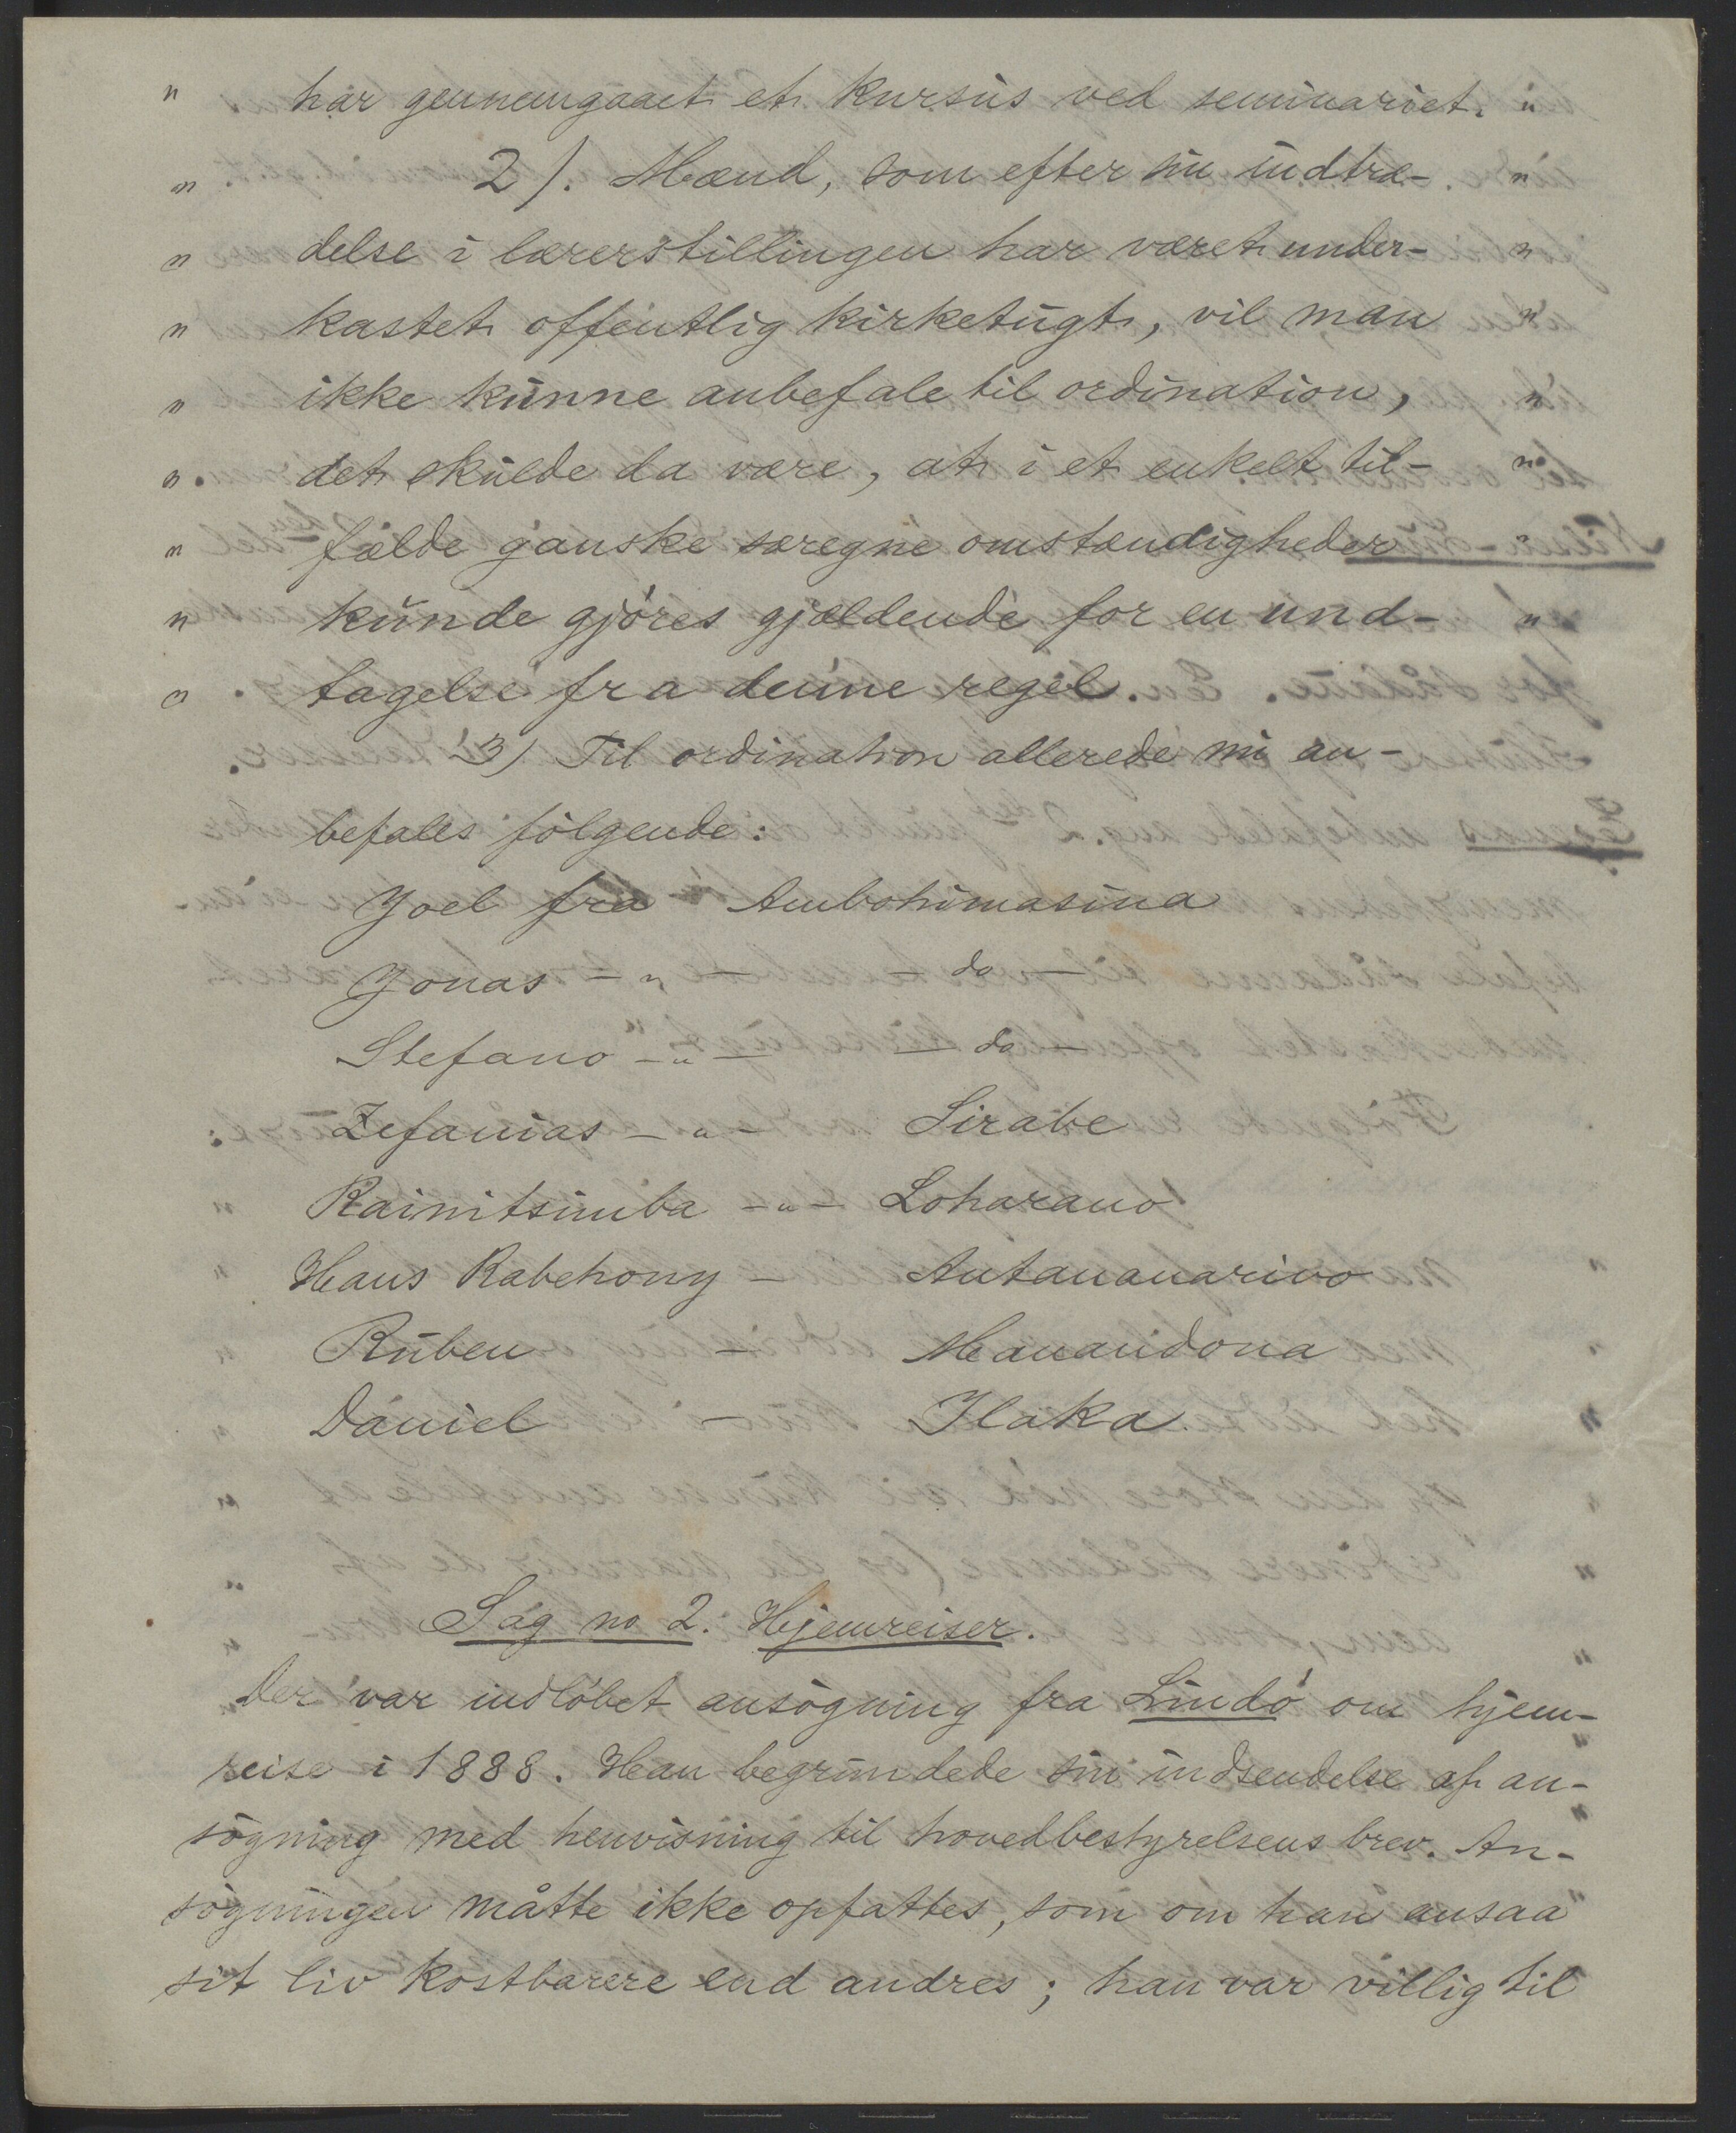 " har gennemgaaet et kursus ved seminariet. "
" 2). Mænd, som efter sin indtræ- "
" delse i lærerstillingen har været under- "
" kastet offentlig kirketugt, vil man "
" ikke kunne anbefale til ordination, "
" det skulde da være, at i et enkelt til- "
" fælde ganske særegne omstændigheder "
" kunde gjöres gjældende for en und- "
" tagelse fra denne regel.
3) Til ordination allerede nu an-
befales fölgende:
Joel fra Ambohimasina
Jonas - " - - do -
Stefano - " - - do -
Zefanias - " - Sirabe
Rainitsimba - " - Loharano
Hans Rabehony - Antananarivo
Ruben - Manandona
Daniel - Ilaka.
Sag no 2. Hjemreiser.
Der var indlöbet ansögning fra Lindö om hjem-
reise i 1888. Han begrundede sin indsendelse af an-
sögning med henvisning til hovedbestyrelsens brev. An-
sögningen måtte ikke opfattes, som om han ansaa
sit liv kostbarere end andres; han var villig til